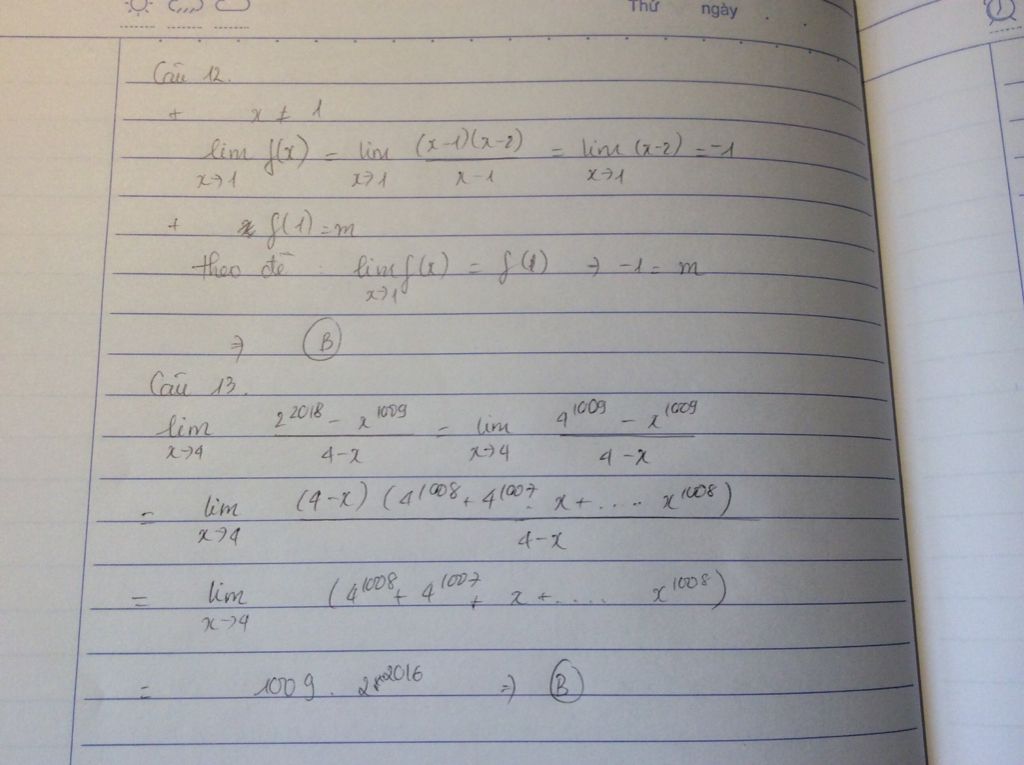 Thứ ngày
Câu 12.
+ x ≠ 1
lim x→1 f(x) = lim x→1 (x-1)(x-2) / x-1 = lim x→1 (x-2) = -1
+ f(1) = m
theo đề : lim x→1 f(x) = f(1) ⇒ -1 = m
⇒ B
Câu 13.
lim x→4 2^2018 - x^1009 / 4-x = lim x→4 4^1009 - x^1009 / 4-x
= lim x→4 (4-x) (4^1008 + 4^1007 . x + .... x^1008) / 4-x
= lim x→4 (4^1008 + 4^1007 + x + .... x^1008)
= 1009 . 2^2016 ⇒ B